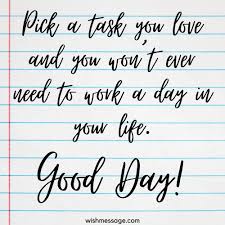 Pick a task you love
and you won't ever
need to work a day in
your life.
Good Day!
wishmessage.com